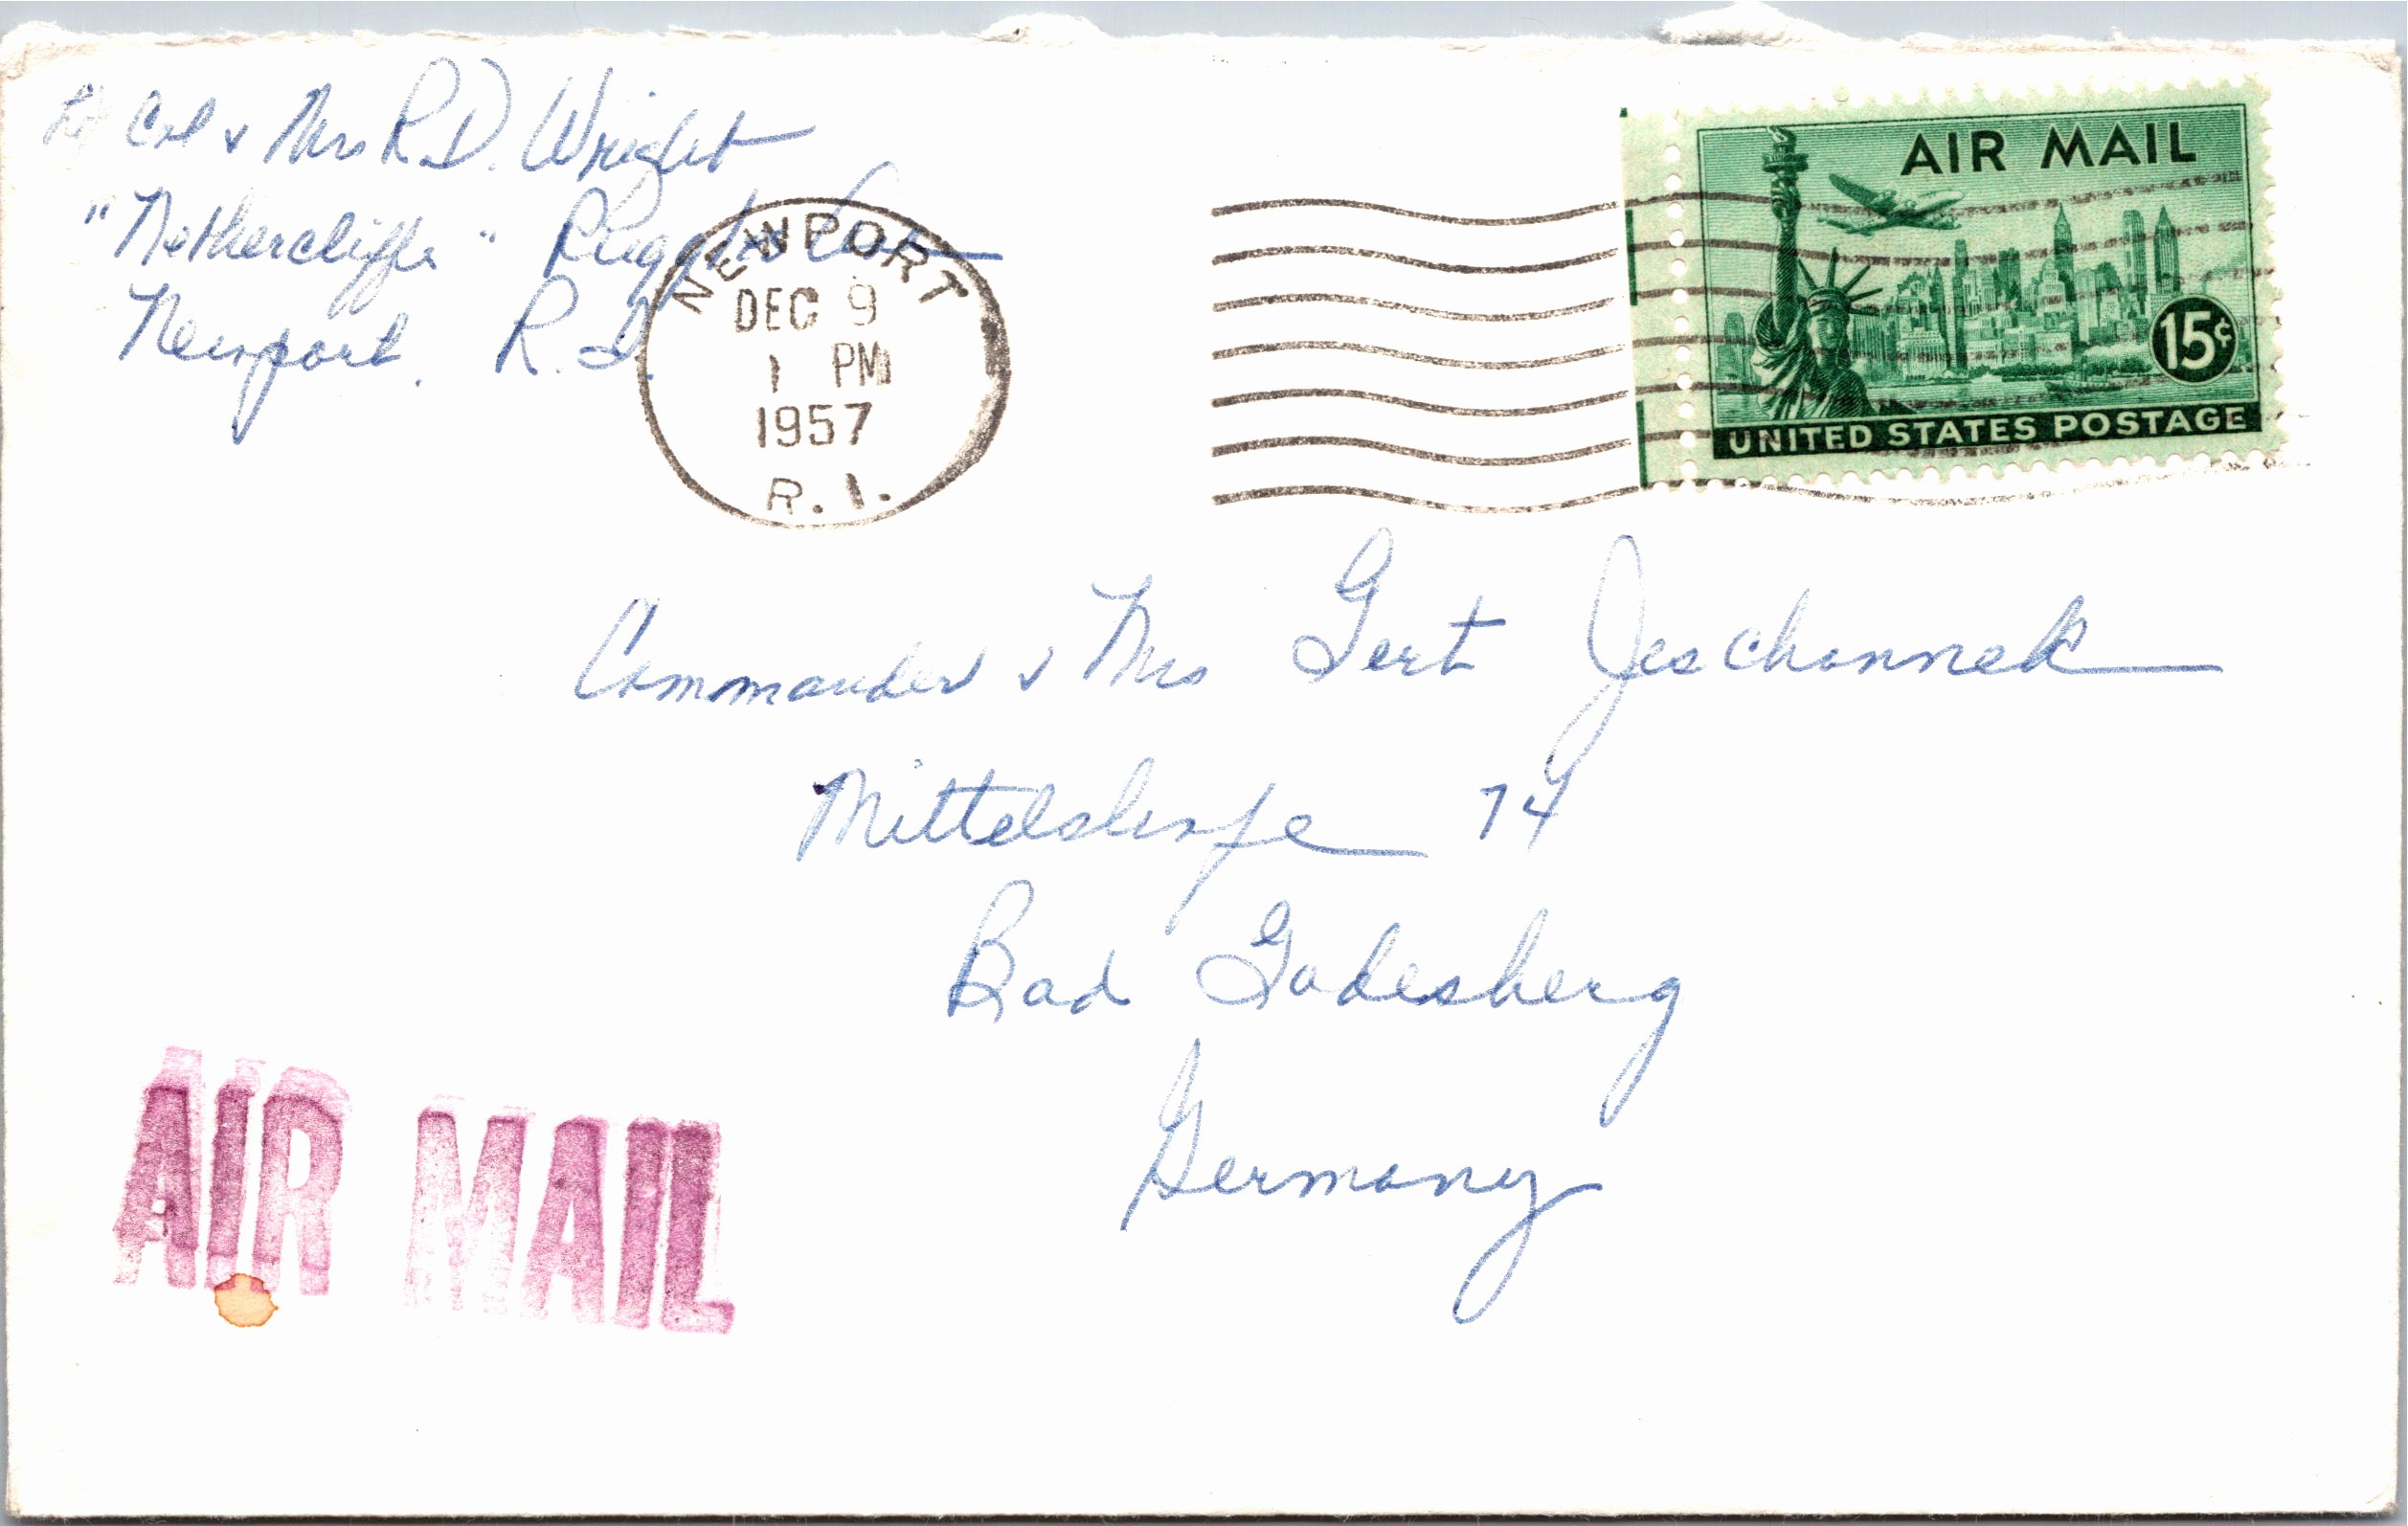 Lt Col & Mrs R.D. Wright
"Nethercliffe" Ruggles Ave
Newport, R.I.
NEWPORT
DEC 9
1 PM
1957
R.I.
AIR MAIL
15¢
UNITED STATES POSTAGE
Commander & Mrs Gert Jeschonnek
74
Bad Godesberg
Germany
AIR MAIL